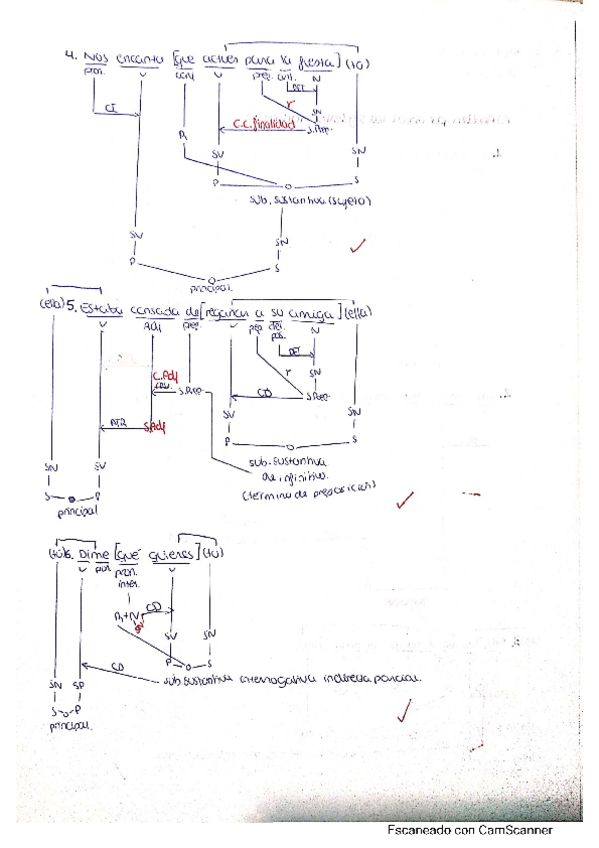 4. Nos encanta [que actúes para la fiesta] (tú)
pron. v conj v prep. art. N
DET
CI r SN
C.C. finalidad S.Prep.
n
SV SN
P O S
sub. sustantiva (sujeto)
SV SN
P S
O
principal.
(ella) 5. Estaba cansada de [regañar a su amiga] (ella)
v Adj prep. v prep. det. N
pos.
DET
C.Adj r SN
S.Prep CD S.Prep
ATR S.Adj SV SN
P O S
SN SV sub. sustantiva
de infinitivo.
S O P (término de preposición)
principal
(tú) 6. Dime [qué quieres] (tú)
v pron pron. v
inter.
CD
n+N
SN SV SN
P O S
CD sub. sustantiva interrogativa indirecta parcial.
SN SP
S O P
principal.
Escaneado con CamScanner